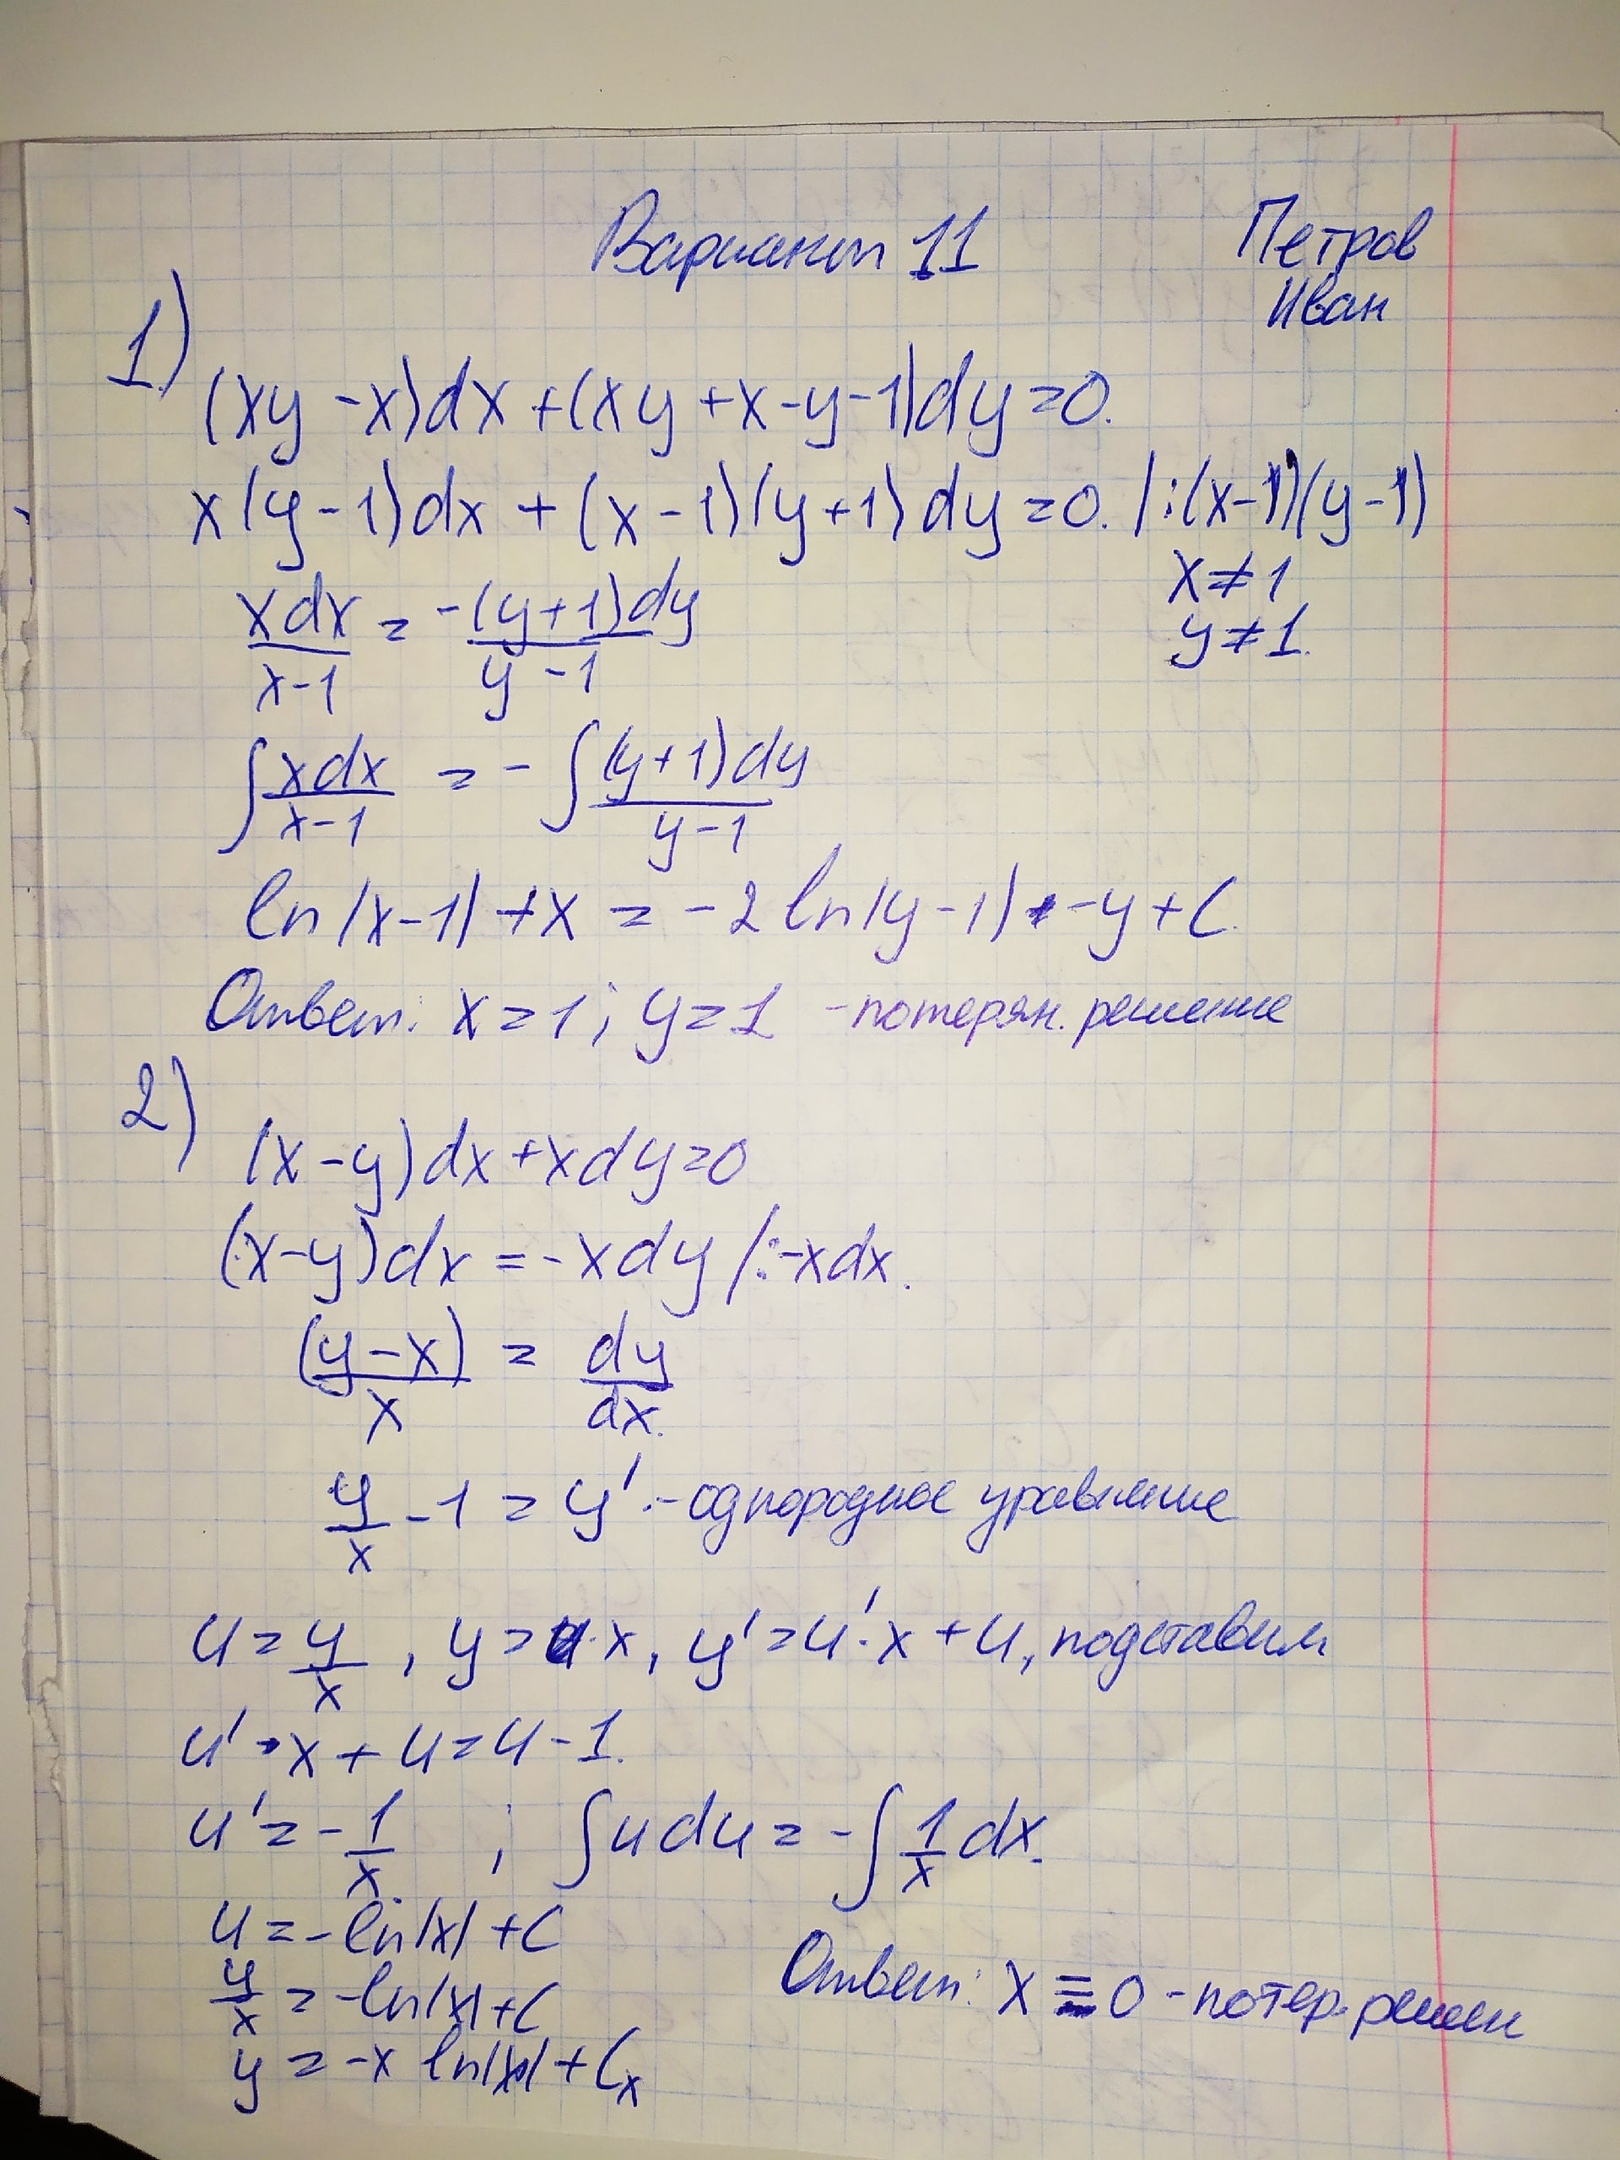 Вариант 11
Петров
Иван
1)
(xy - x)dx + (xy + x - y - 1)dy = 0.
x(y - 1)dx + (x - 1)(y + 1)dy = 0. | :(x-1)(y-1)
x ≠ 1
y ≠ 1.
xdx/(x-1) = -(y+1)dy/(y-1)
∫ xdx/(x-1) = - ∫ (y+1)dy/(y-1)
ln|x-1| + x = -2 ln|y-1| - y + C.
Ответ: x = 1; y = 1 - потерян. решение
2)
(x - y)dx + xdy = 0
(x - y)dx = -xdy / :-xdx.
(y - x)/x = dy/dx.
y/x - 1 = y' - однородное уравнение
u = y/x, y = u·x, y' = u'·x + u, подставим
u'·x + u = u - 1.
u' = -1/x ; ∫udu = -∫ 1/x dx.
u = -ln|x| + C
y/x = -ln|x| + C
y = -x ln|x| + Cx
Ответ: x = 0 - потер. решен